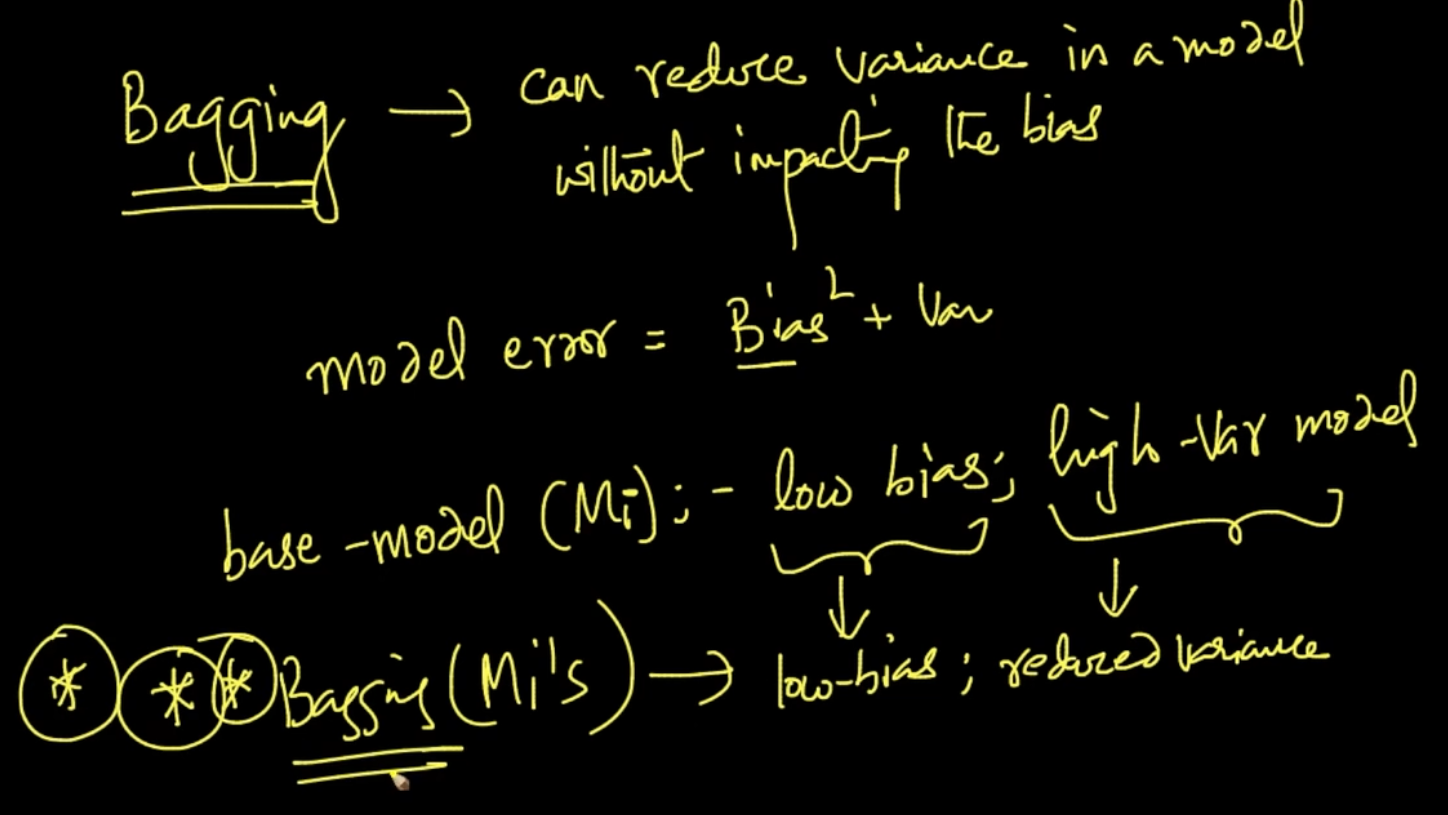 Bagging → can reduce variance in a model
without impacting the bias
model error = Bias² + Var
base-model (Mi); - low bias; high-var model
* * * Bagging (Mi's) → low-bias; reduced variance